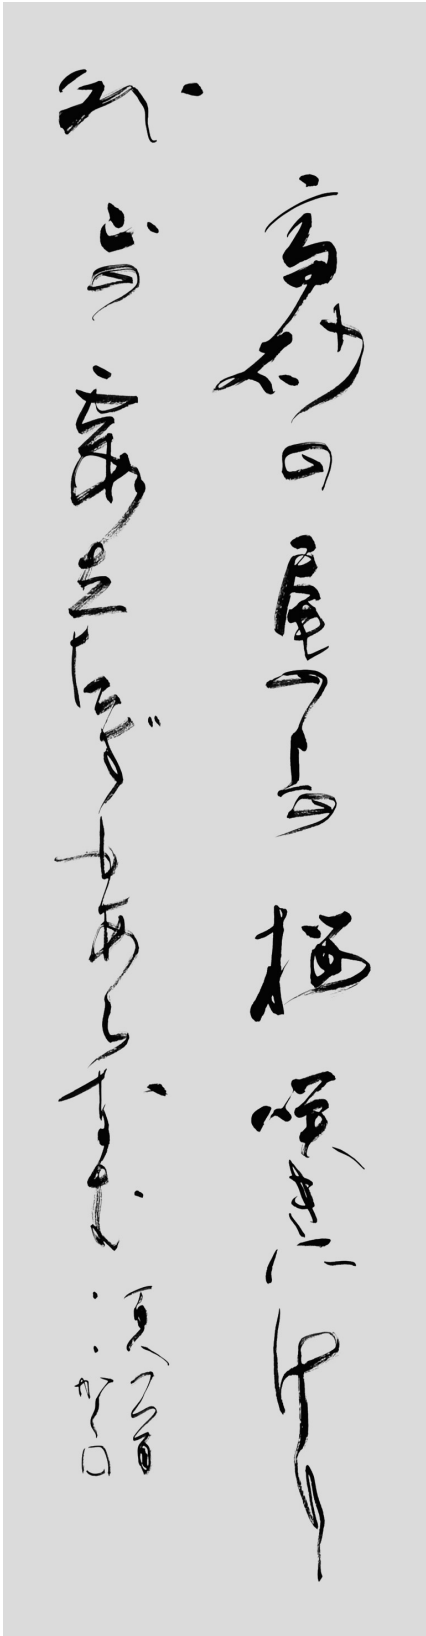 高砂の尾の上の桜咲きにけり
外山の霞立たずもあらなむ